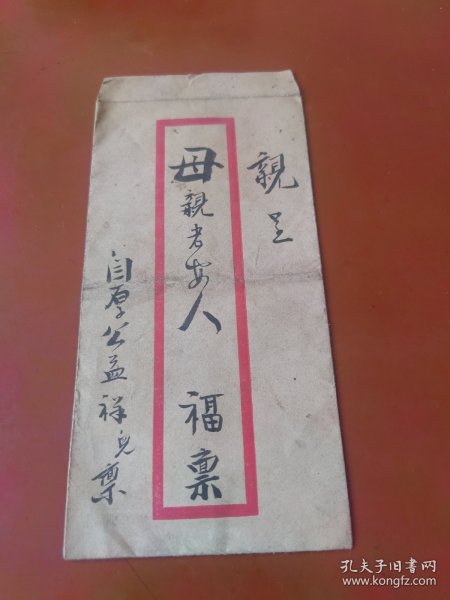 親呈
母親老安人 福禀
自厚公益祥兄禀
孔夫子旧书网
www.kongfz.com